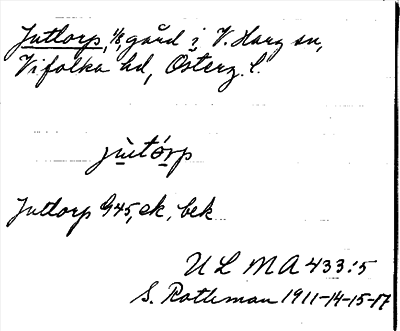 Juttorp, 1/8, gård i V. Harg sn,
Vifolka hd, Österg. l.
jùtórp
Juttorp G45, ek, bek
ULMA 433:5
S. Rothman 1911-14-15-17